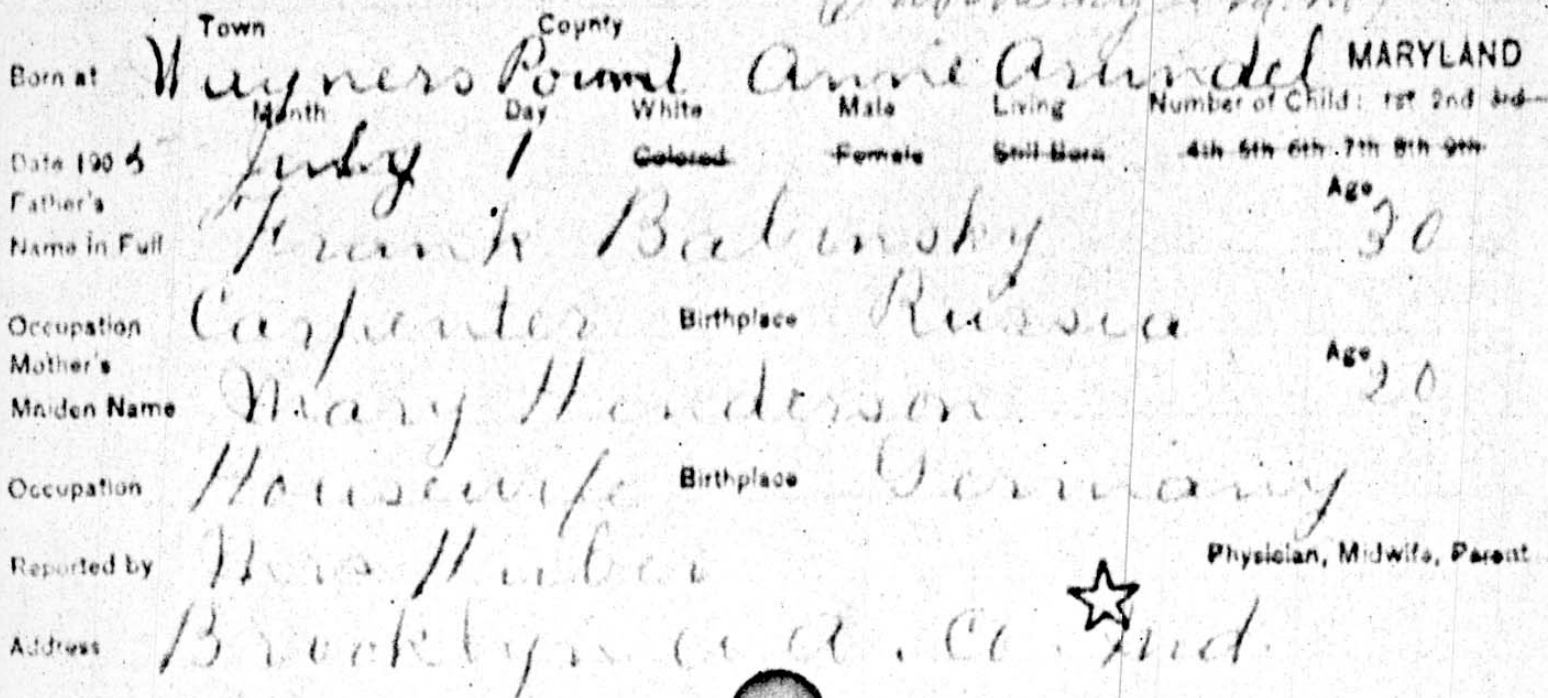 Town County
Born at Wagners Pound Anne Arundel MARYLAND
Month Day White Male Living Number of Child: 1st 2nd 3rd
Date 1905 July 1 Colored Female Still Born 4th 5th 6th 7th 8th 9th
Father's Age 30
Name in Full Frank Babinsky
Occupation Carpenter Birthplace Russia
Mother's Age 20
Maiden Name Mary Henderson
Occupation Housewife Birthplace Germany
Reported by Mrs Huber Physician, Midwife, Parent
Address Brooklyn A. A. Co Md.